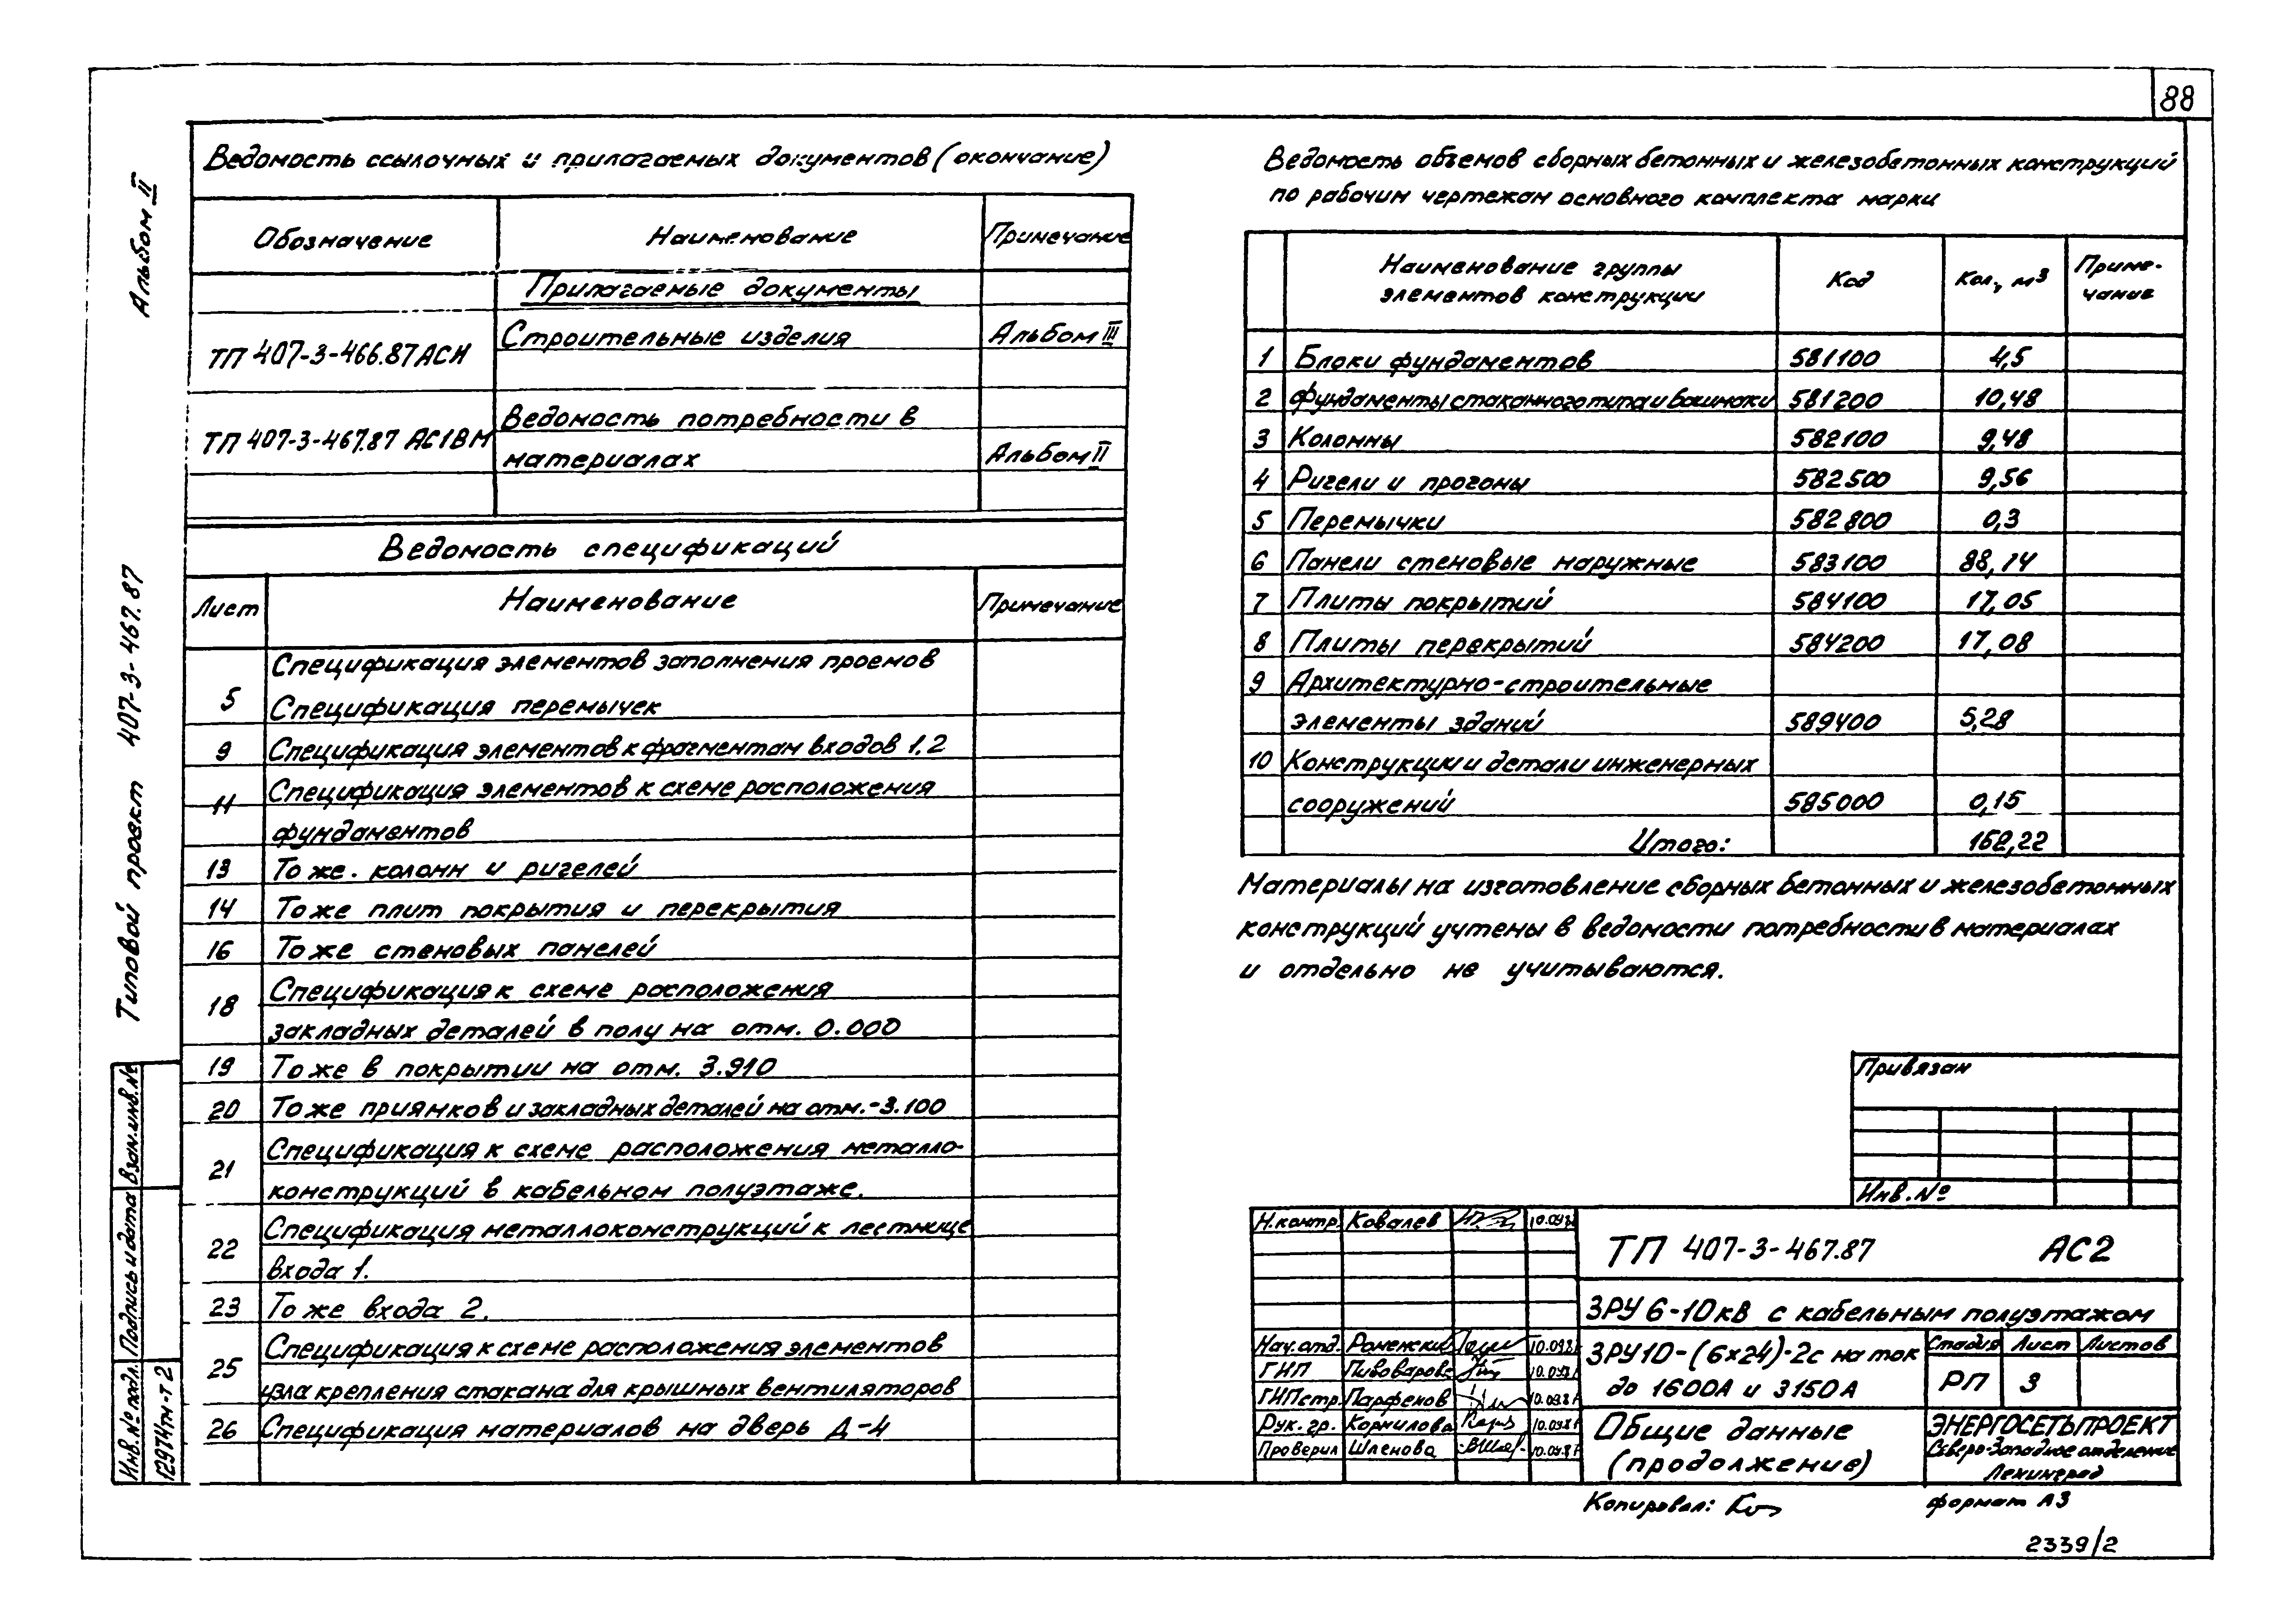 88
Альбом II
Типовой проект 407-3-467.87
Взам.инв.№
Подпись и дата
Инв.№ подл.
12974тм-т2
Ведомость ссылочных и прилагаемых документов (окончание)
Обозначение Наименование Примечание
Прилагаемые документы
ТП 407-3-466.87 АСИ Строительные изделия Альбом III
Ведомость потребности в
ТП 407-3-467.87 АС1ВМ материалах Альбом II
Ведомость спецификаций
Лист Наименование Примечание
Спецификация элементов заполнения проемов
5 Спецификация перемычек
9 Спецификация элементов к фрагментам входов 1.2
11 Спецификация элементов к схеме расположения
фундаментов
13 То же. колонн и ригелей
14 То же плит покрытия и перекрытия
16 То же стеновых панелей
18 Спецификация к схеме расположения
закладных деталей в полу на отм. 0.000
19 То же в покрытии на отм. 3.910
20 То же приямков и закладных деталей на отм.-3.100
21 Спецификация к схеме расположения металло-
конструкций в кабельном полуэтаже.
22 Спецификация металлоконструкций к лестнице
входа 1.
23 То же входа 2.
25 Спецификация к схеме расположения элементов
узла крепления стакана для крышных вентиляторов
26 Спецификация материалов на дверь Д-4
Ведомость объемов сборных бетонных и железобетонных конструкций
по рабочим чертежам основного комплекта марки
Наименование группы элементов конструкции Код Кол., м³ Приме-чание
1 Блоки фундаментов 581100 4,5
2 Фундаменты стаканного типа и башмаки 581200 10,48
3 Колонны 582100 9,48
4 Ригели и прогоны 582500 9,56
5 Перемычки 582800 0,3
6 Панели стеновые наружные 583100 88,14
7 Плиты покрытий 584100 17,05
8 Плиты перекрытий 584200 17,08
9 Архитектурно-строительные
элементы зданий 589400 5,28
10 Конструкции и детали инженерных
сооружений 585000 0,15
Итого: 162,22
Материалы на изготовление сборных бетонных и железобетонных
конструкций учтены в ведомости потребности в материалах
и отдельно не учитываются.
Привязан
Инв.№
Н.контр. Ковалев
ТП 407-3-467.87 АС2
ЗРУ 6-10кВ с кабельным полуэтажом
Нач.отд. Роменский
ГИП Пивоварова
ГИПстр. Парфенов
Рук. гр. Корнилова
Проверил Шленова
ЗРУ10-(6х24)-2с на ток
до 1600А и 3150А
Стадия Лист Листов
РП 3
Общие данные
(продолжение)
ЭНЕРГОСЕТЬПРОЕКТ
Северо-Западное отделение
Ленинград
Копировал:
формат А3
2339/2